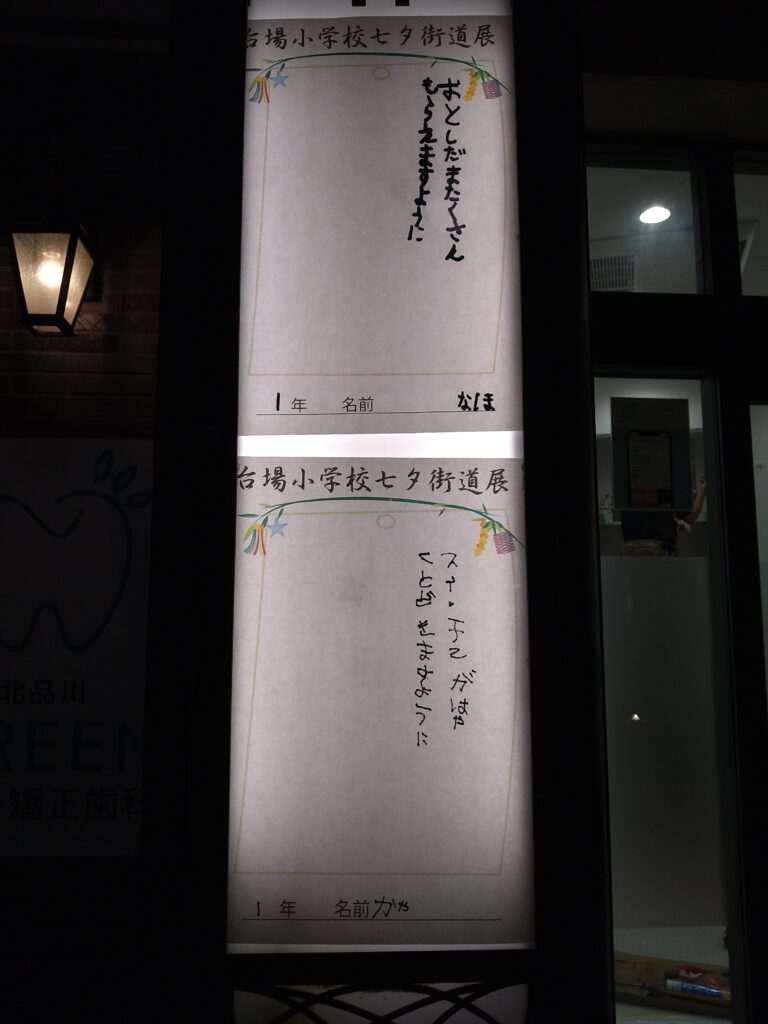 台場小学校七夕街道展
おとしだまたくさん
もらえますように
1年 名前 なほ
台場小学校七夕街道展
スイッチ2がはや
くとどきますように
1年 名前 かや
北品川
REEN
・矯正歯科